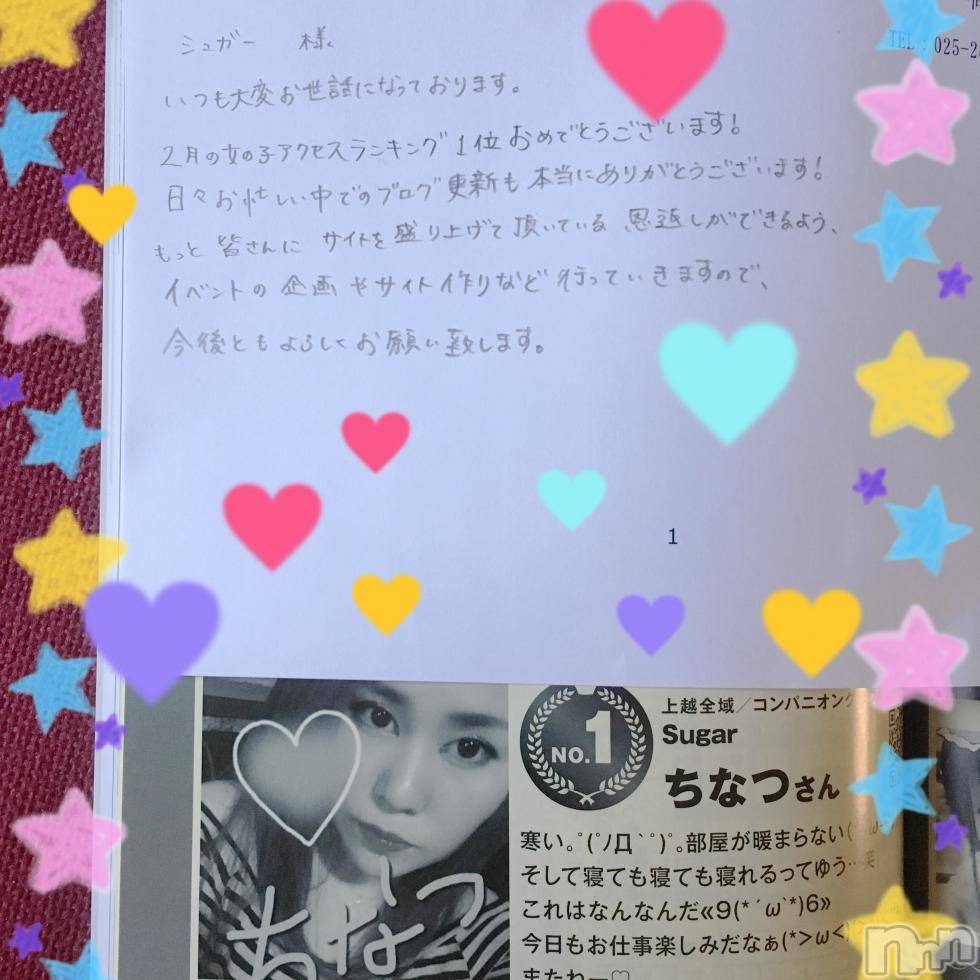 TEL : 025-2
シュガー 様
いつも大変お世話になっております。
2月の女の子アクセスランキング1位おめでとうございます!
日々お忙しい中でのブログ更新も本当にありがとうございます!
もっと皆さんにサイトを盛り上げて頂いている恩返しができるよう、
イベントの企画やサイト作りなど行っていきますので、
今後ともよろしくお願い致します。
1
NO.1
上越全域/コンパニオン
Sugar
ちなつさん
寒い。゜(゜ノД`゜)゜。部屋が暖まらない(
そして寝ても寝ても寝れるってゆう…笑
これはなんなんだ≪9(*´ω`*)6≫
今日もお仕事楽しみだなぁ(*>ω<)
またねー♡
ちなつ